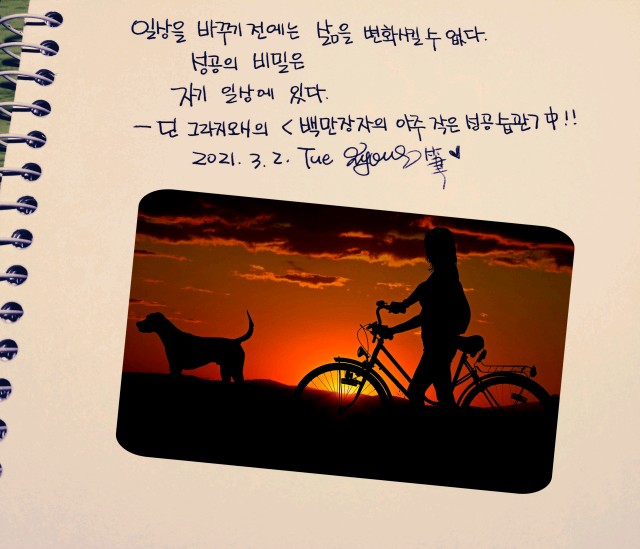 일상을 바꾸기 전에는 삶을 변화시킬 수 없다.
성공의 비밀은
자기 일상에 있다.
- 딘 그라지오쉬의 <백만장자의 아주 작은 성공습관> 中!!
2021. 3. 2. Tue 筆♥